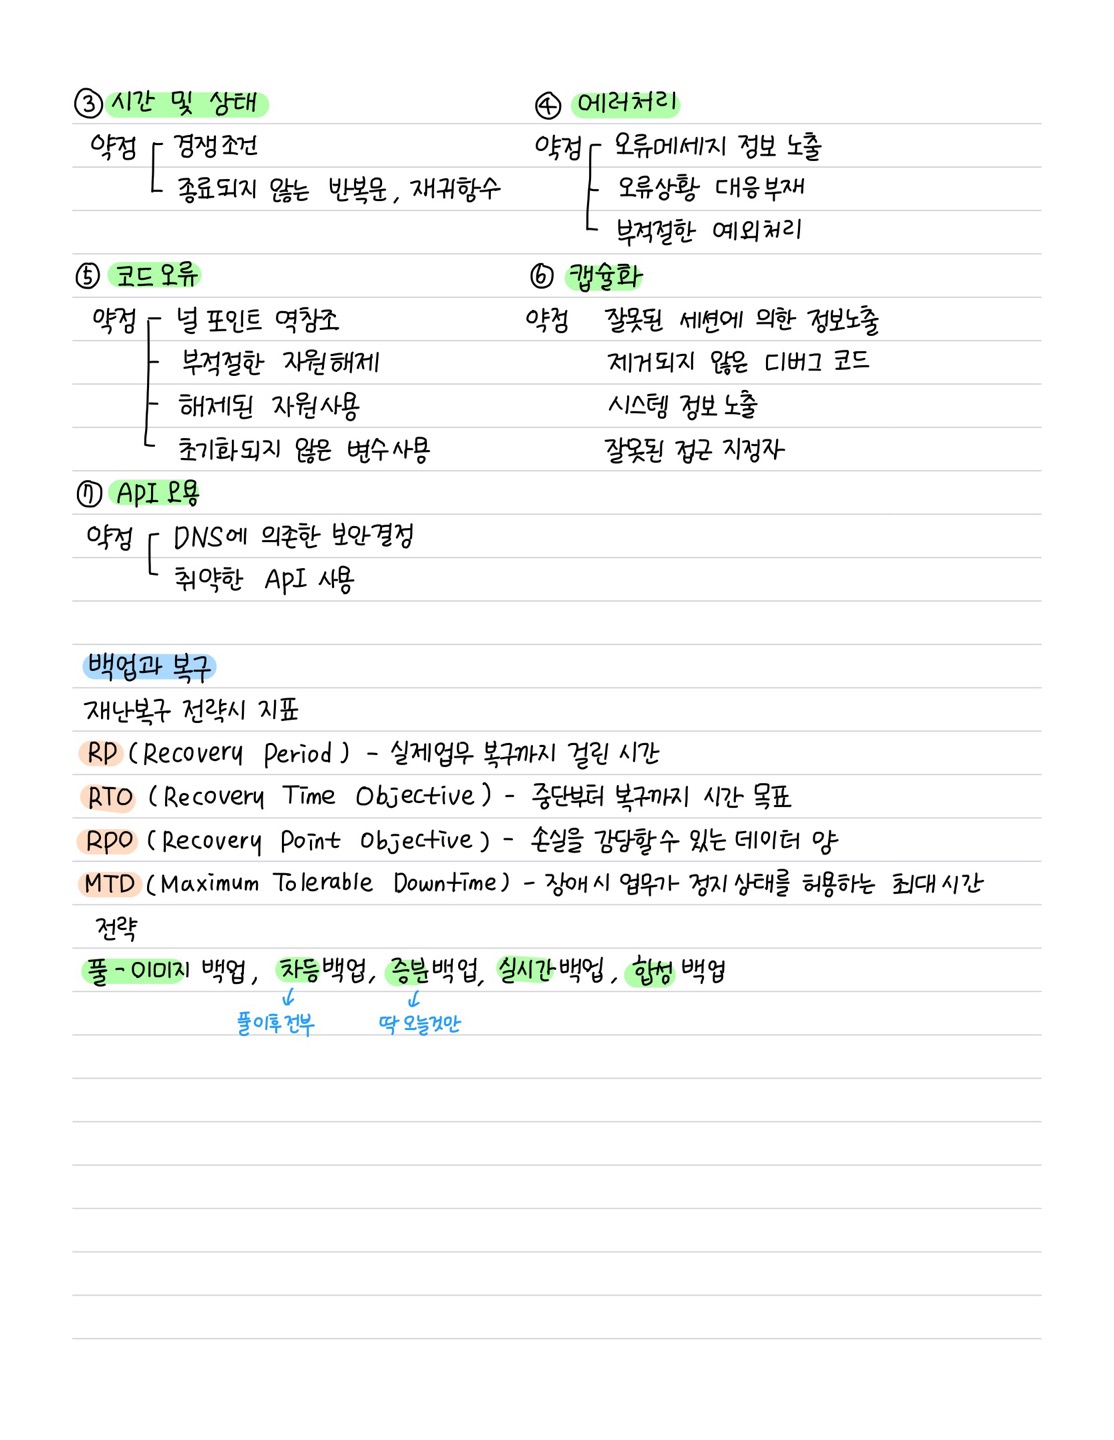 ③ 시간 및 상태
약점 경쟁조건
종료되지 않는 반복문, 재귀함수
④ 에러처리
약점 오류메세지 정보 노출
오류상황 대응부재
부적절한 예외처리
⑤ 코드오류
약점 널 포인트 역참조
부적절한 자원해제
해제된 자원사용
초기화되지 않은 변수사용
⑥ 캡슐화
약점 잘못된 세션에 의한 정보노출
제거되지 않은 디버그 코드
시스템 정보노출
잘못된 접근 지정자
⑦ API 오용
약점 DNS에 의존한 보안결정
취약한 API 사용
백업과 복구
재난복구 전략시 지표
RP (Recovery Period) - 실제업무 복구까지 걸린 시간
RTO (Recovery Time Objective) - 중단부터 복구까지 시간 목표
RPO (Recovery Point Objective) - 손실을 감당할수 있는 데이터 양
MTD (Maximum Tolerable Downtime) - 장애시 업무가 정지상태를 허용하는 최대시간
전략
풀-이미지 백업, 차등백업, 증분백업, 실시간백업, 합성 백업
↓ ↓
풀이후전부 딱 오늘것만